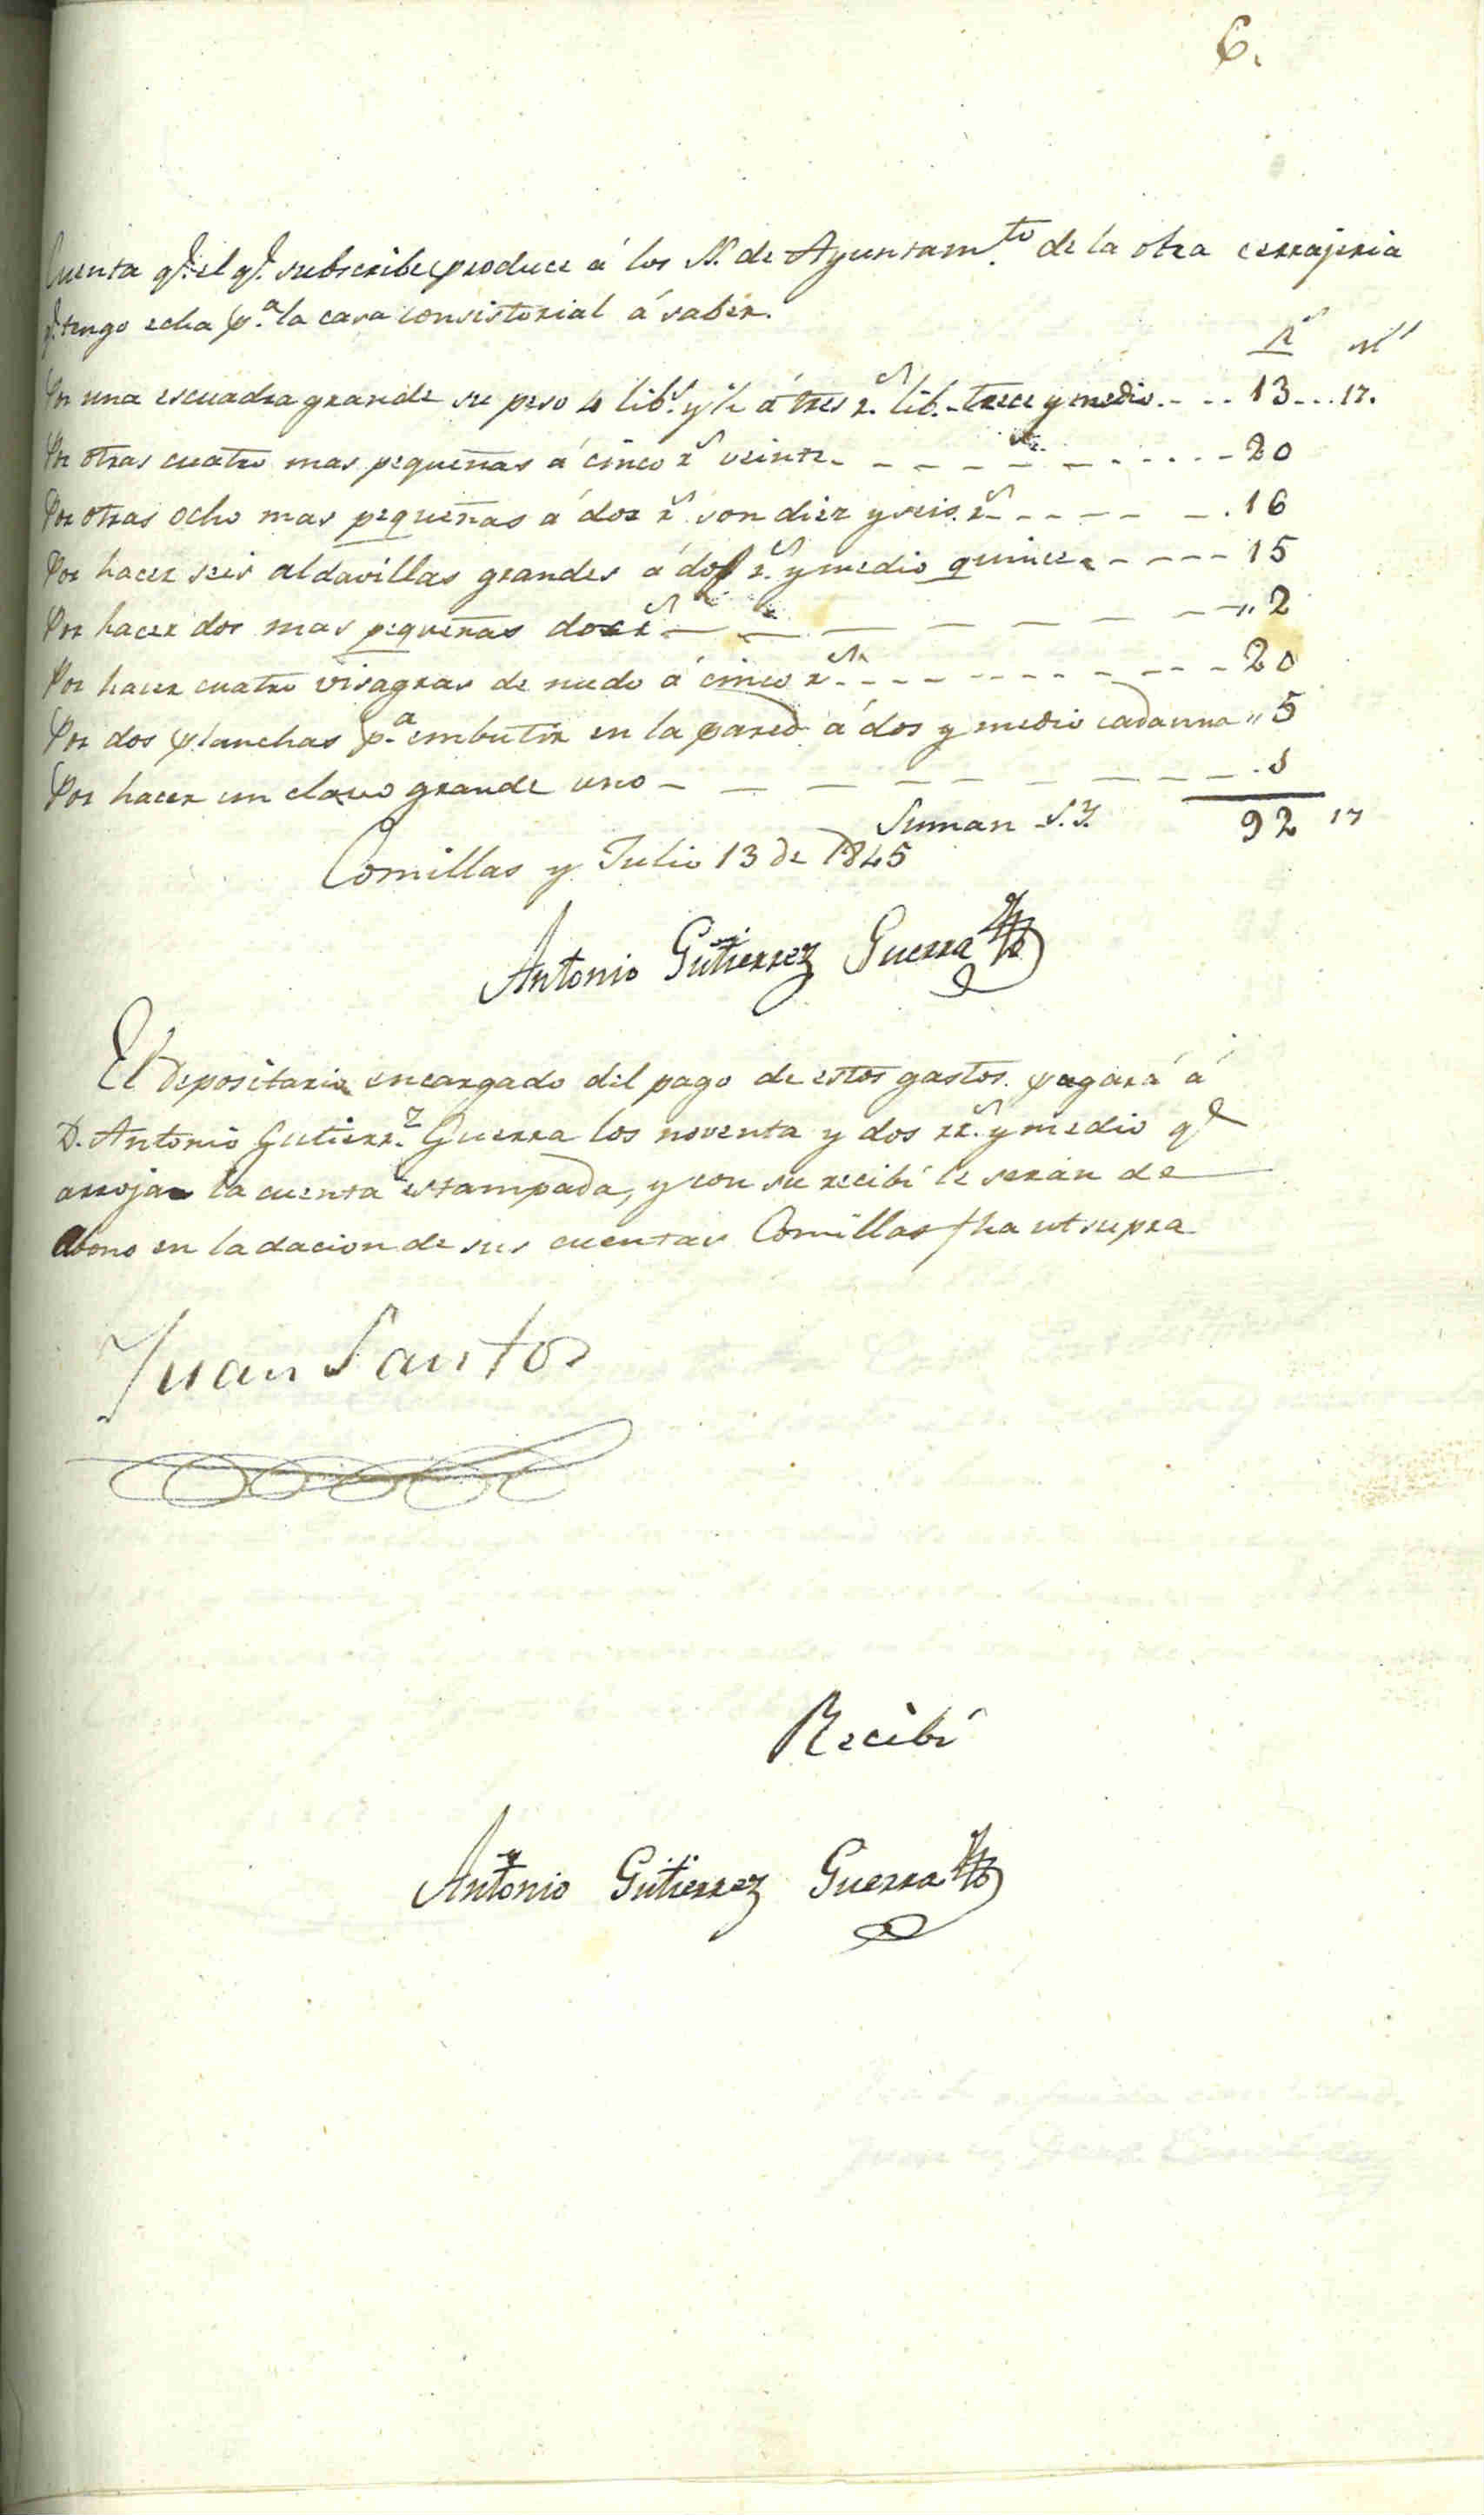 6.
Cuenta q.e el q.e subscribe produce á los SS. de Ayuntam.to de la obra cerrajeria
q.e tengo echa p.a la casa consistorial á saber.
R.s m.s
Por una escuadra grande su peso 4 lib.s y ½ á tres r.s lib. trece y medio. - - - 13 - - - 17.
Por otras cuatro mas pequeñas á cinco r.s veinte - - - - - - - - - - 20
Por otras ocho mas pequeñas á dos r.s son diez y seis r.s - - - - - - 16
Por hacer seis aldavillas grandes á dos r.s y medio quince - - - - - 15
Por hacer dos mas pequeñas dos r.s - - - - - - - - " 2
Por hacer cuatro visagras de nudo á cinco r.s - - - - - - - - - 20
Por dos planchas p.a embutir en la pared á dos y medio cada una " 5
Por hacer un clavo grande uno - - - - - - - - - - 1
Suman S.Y. 92 17
Comillas y Julio 13 de 1845
Antonio Gutierrez Guerra
El Depositario encargado del pago de estos gastos pagará á
D. Antonio Gutierr.z Guerra los noventa y dos rr.s y medio q.e
arroja la cuenta estampada, y con su recibí le serán de
abono en la dacion de sus cuentas Comillas fha ut supra
Juan Santos
Recibí
Antonio Gutierrez Guerra